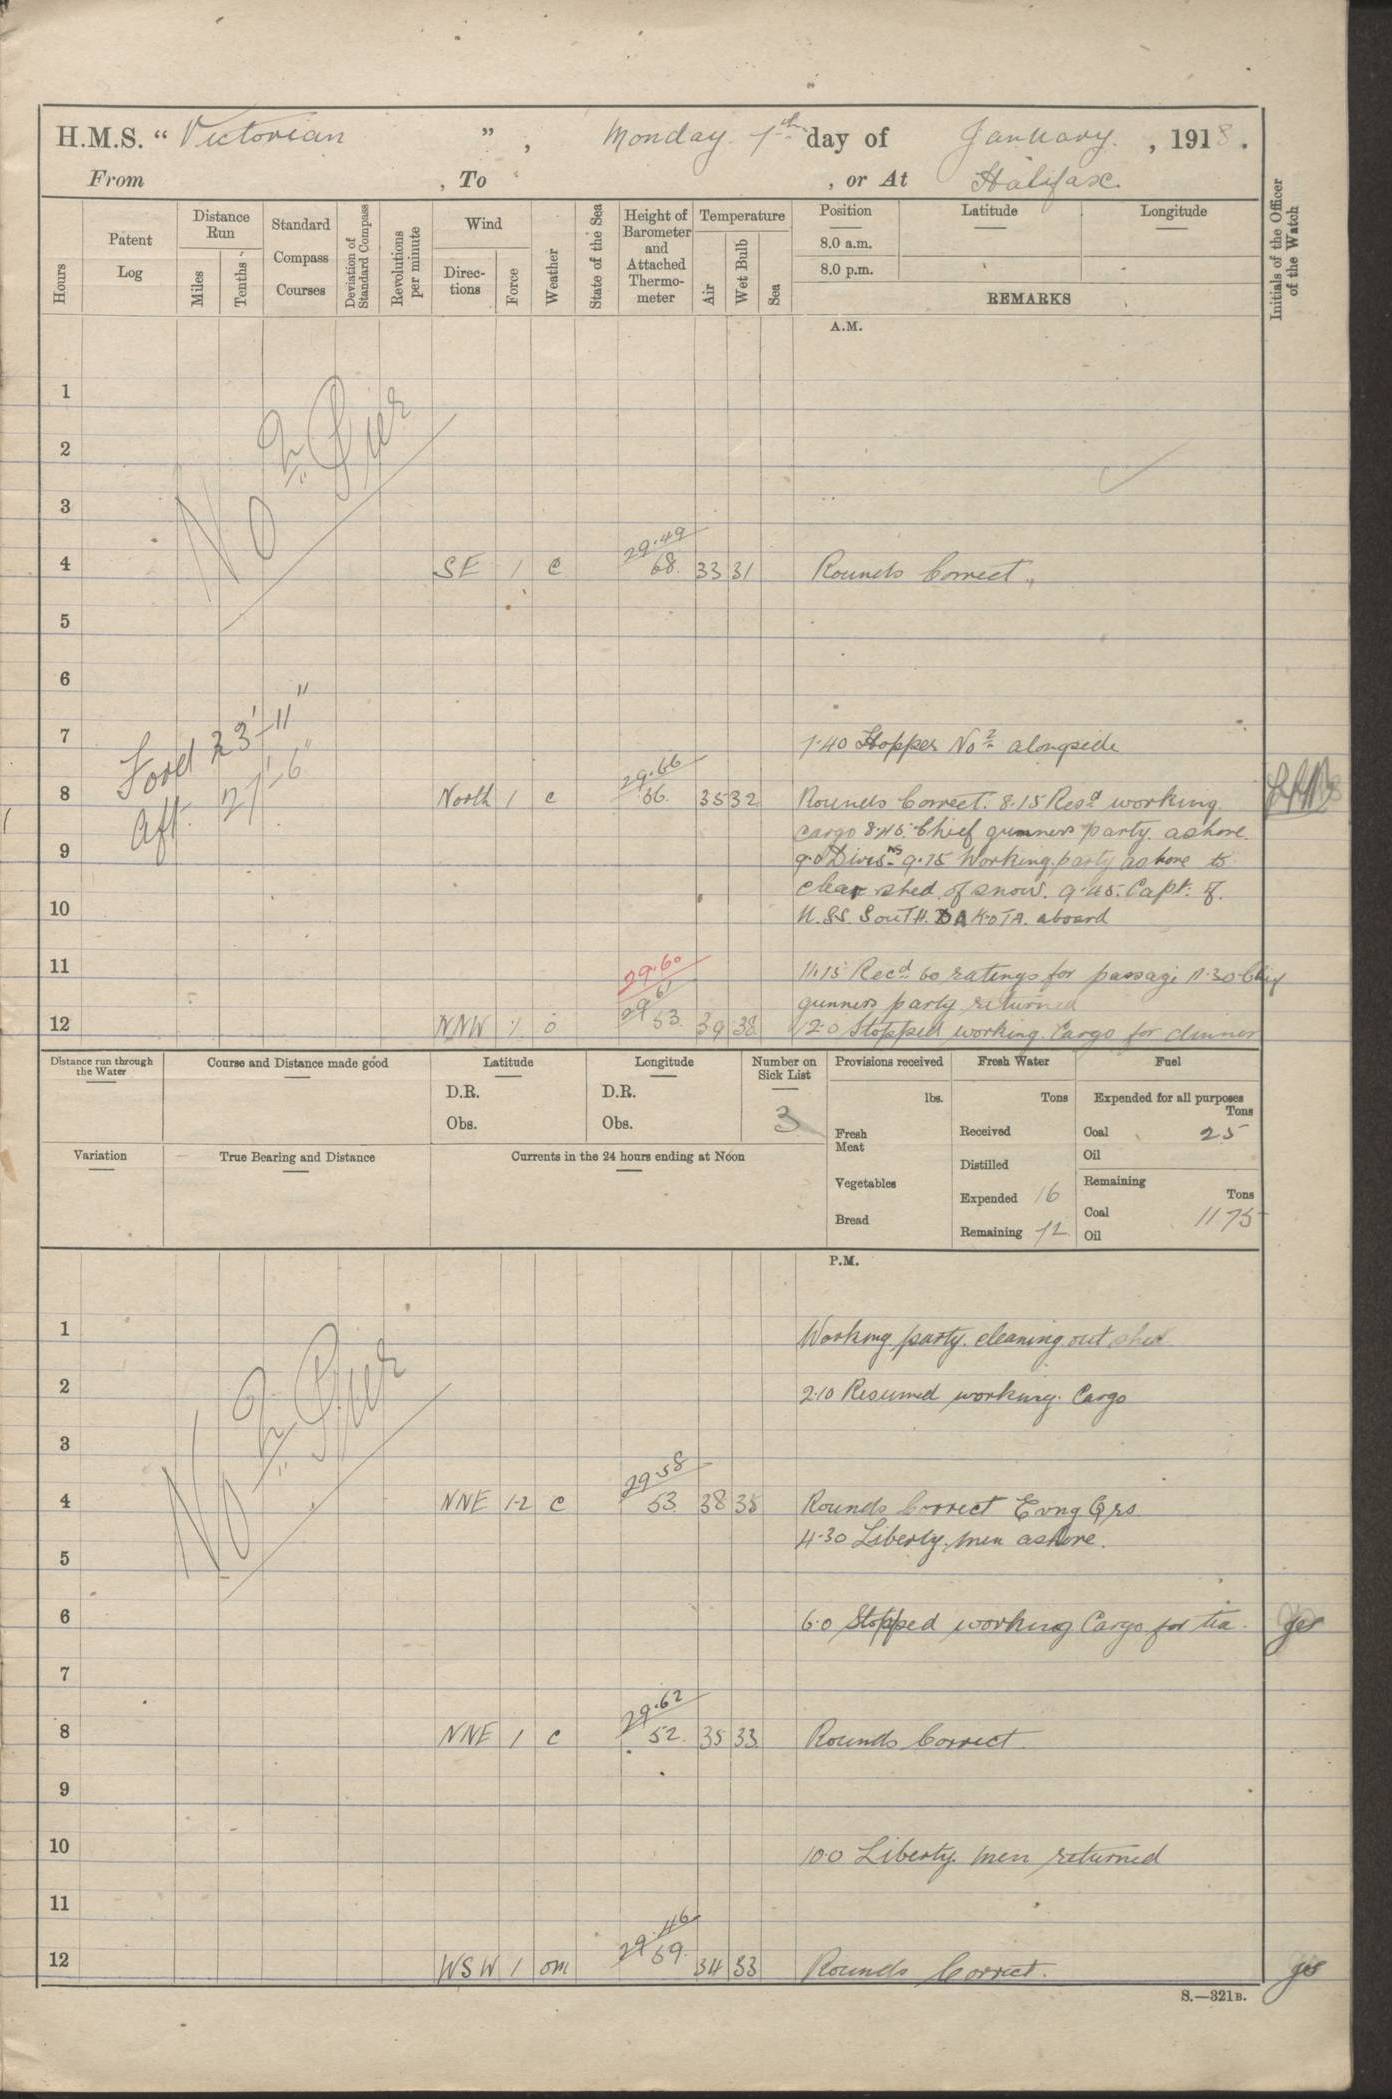 H.M.S. " Victorian ", Monday 7th day of January, 1918.
From , To , or At Halifax.
Hours
Patent Log
Distance Run
Miles
Tenths
Standard Compass Courses
Deviation of Standard Compass
Revolutions per minute
Wind
Directions
Force
Weather
State of the Sea
Height of Barometer and Attached Thermometer
Temperature
Air
Wet Bulb
Sea
Position
8.0 a.m.
8.0 p.m.
Latitude
Longitude
REMARKS
Initials of the Officer of the Watch
A.M.
1
2
No 2 Pier
3
29.49
4 SE 1 c 68. 33 31 Rounds Correct.
5
6
7 7.40 Hopper No 2 alongside
Ford 23'-11"
Aft. 27'-6"
29.66
8 North 1 c 36. 35 32 Rounds Correct. 8.15 Resd working
cargo 8.45. Chief gunners party ashore.
9 9.0 Divisns 9.15 Working party ashore to
clear shed of snow. 9.45. Capt: of
10 U.S.S. SOUTH. DAKOTA. aboard
29.60
11 11.15 Recd 60 ratings for passage 11.30 Chief
29.61 gunners party returned
12 NNW 1 o 53. 39 38 12.0 Stopped working Cargo for dinner
Distance run through the Water
Course and Distance made good
Latitude
D.R.
Obs.
Longitude
D.R.
Obs.
Number on Sick List
3
Provisions received
lbs.
Fresh Meat
Vegetables
Bread
Fresh Water
Tons
Received
Distilled
Expended 16
Remaining 72
Fuel
Expended for all purposes
Tons
Coal 25
Oil
Remaining
Tons
Coal 1175
Oil
Variation
True Bearing and Distance
Currents in the 24 hours ending at Noon
P.M.
1 Working party cleaning out shed
2 2.10 Resumed working Cargo
No 2 Pier
3
29.58
4 NNE 1-2 c 53. 38 35 Rounds Correct Evng Qrs
4.30 Liberty men ashore.
5
6 6.0 Stopped working Cargo for tea.
7
29.62
8 NNE 1 c 52. 35 33 Rounds Correct
9
10 10.0 Liberty men returned
11
29.46
12 WSW 1 om 59. 34 33 Rounds Correct.
S.—321B.